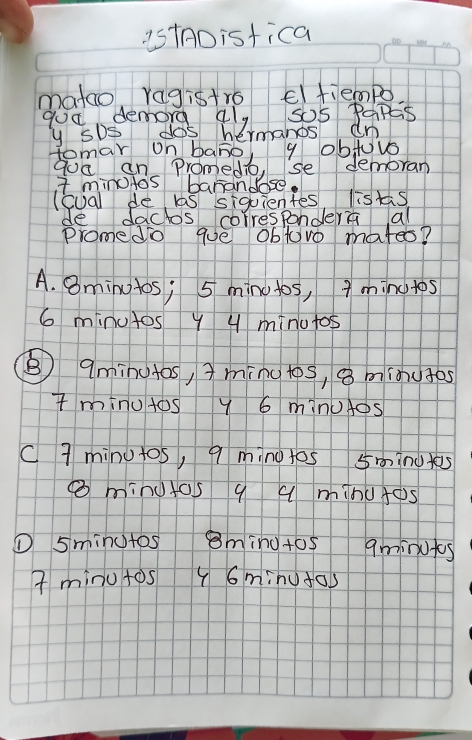 ESTADistica
mateo ragistro el tiempo
que demora el, sus PaPás
y sus dos hermanos en
tomar un baño, y obtuvo
que en Promedio, se demoran
7 minutos bañandose.
¿Cual de las siguientes listas
de dactos correspondería al
Promedio que obtuvo mateo?
A. 8minutos; 5 minutos, 7 minutos
6 minutos y 4 minutos
B 9minutos, 7 minutos, 8 minutos
7 minutos y 6 minutos
C 7 minutos, 9 minutos 5minutos
8 minutos y 4 minutos
D 5minutos 8minutos 9minutos
7 minutos y 6minutos